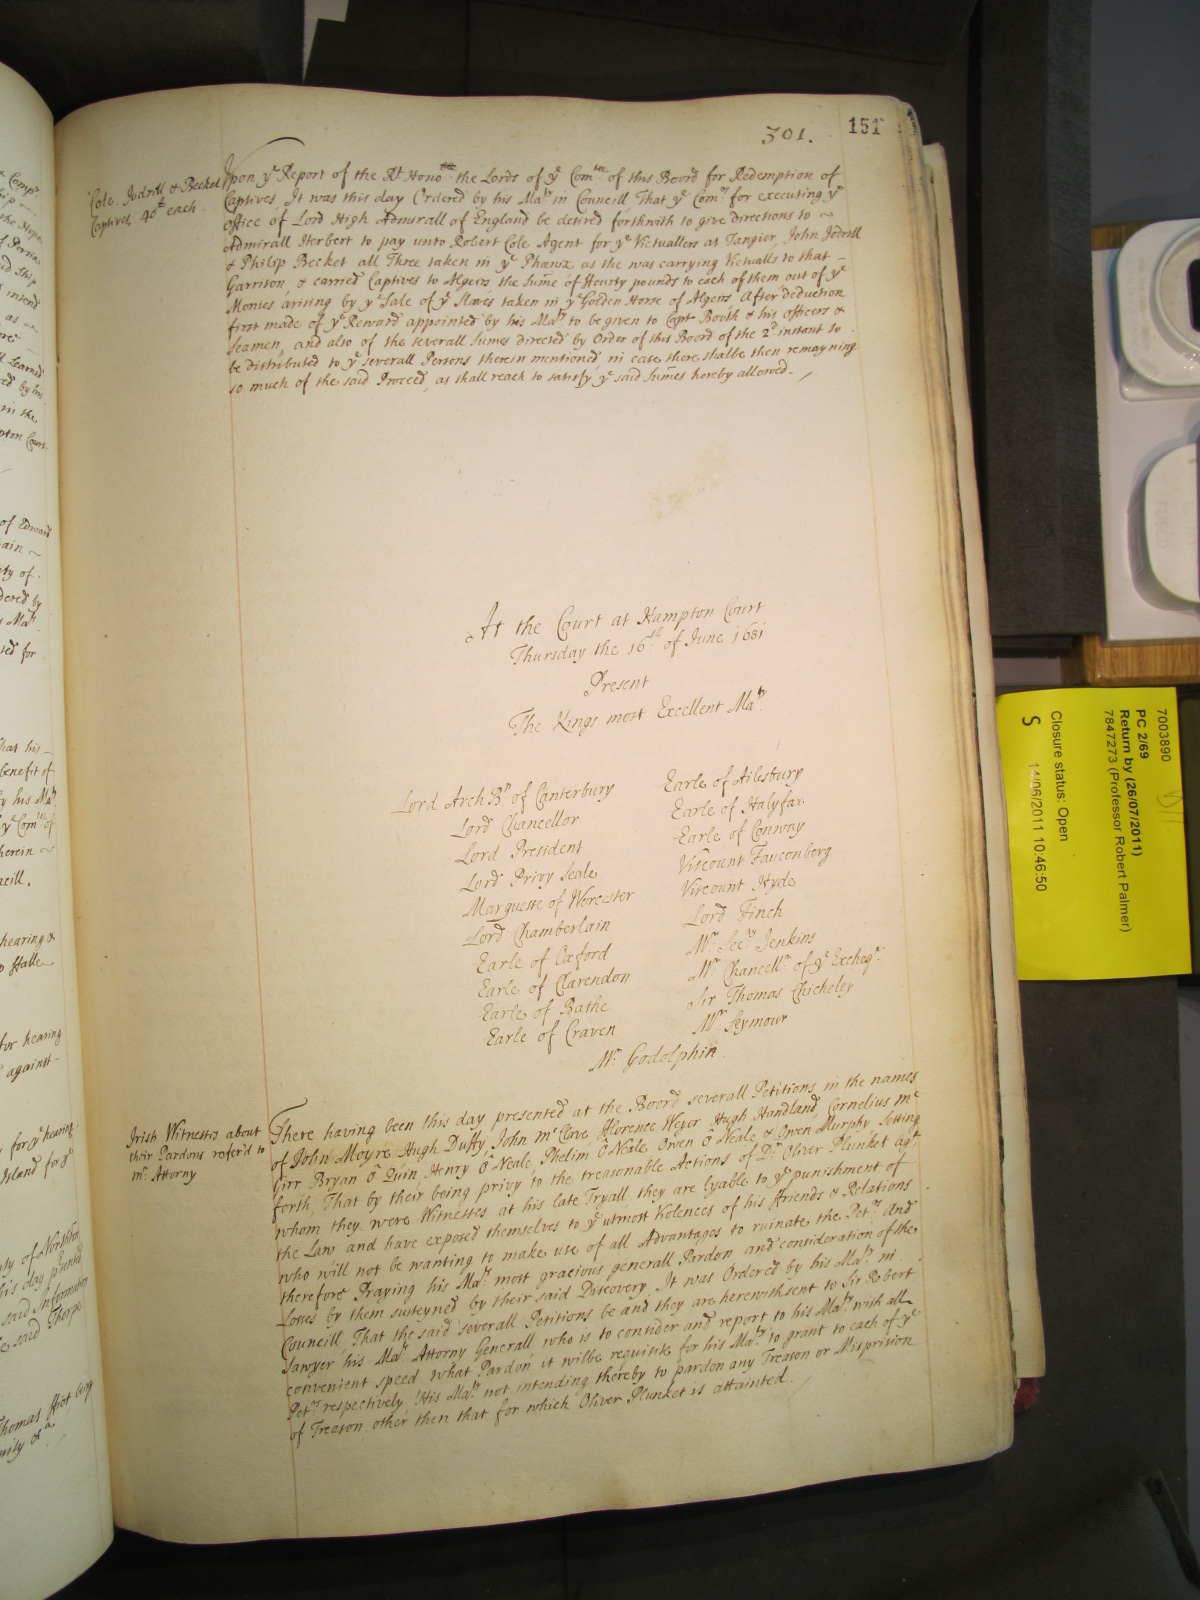 301.
151
Cole. Jodrill & Becket
Captives, 40£ each.
Upon ye Report of the Rt Honoble the Lords of ye Comtee of this Board for Redemption of
Captives, It was this day Ordered by his Maty in Councill That ye Comrs for executing ye
office of Lord High Admirall of England be desired forthwith to give directions to ~
Admirall Herbert to pay unto Robert Cole Agent for ye Victuallers at Tangier, John Jodrell
& Philip Becket all Three taken in ye Phœnix as she was carrying Victualls to that -
Garrison, & carried Captives to Algeirs the Sume of Fourty pounds to each of them out of ye
Monies arising by ye Sale of ye Slaves taken in ye Golden Horse of Algeirs After deduction
first made of ye Reward appointed by his Maty to be given to Capt Booth & his officers &
Seamen, and also of the severall Sumes directed by Order of this Board of the 2d instant to
be distributed to ye severall Persons therein mentioned, in case there shalbe then remayning
so much of the said Proceed, as shall reach to satisfy ye said Sumes hereby allowed.
At the Court at Hampton Court
Thursday the 16th of June 1681
Present
The Kings most Excellent Maty
Lord Arch Bp of Canterbury
Lord Chancellor
Lord President
Lord Privy Seale
Marquesse of Worcester
Lord Chamberlain
Earle of Oxford
Earle of Clarendon
Earle of Bathe
Earle of Craven
Earle of Ailesbury
Earle of Halyfax
Earle of Conway
Viscount Fauconberg
Viscount Hyde
Lord Finch
Mr Secry Jenkins
Mr Chancellr of ye Excheqr
Sir Thomas Chicheley
Mr Seymour
Mr Godolphin
Irish Witnesses about
their Pardons refer'd to
mr Attorny
There having been this day presented at the Board severall Petitions in the names
of John Moyre Hugh Duffy, John mcClave, Florence Weyer Hugh Handland, Cornelius mc
Girr Bryan ô Quin Henry Ô Neale, Phelim Ô Neale, Owen Ô Neale & Owen Murphy setting
forth, That by their being privy to the treasonable Actions of Dr Oliver Plunket agt
whom they were Witnesses at his late Tryall, they are lyable to ye punishment of
the Law and have exposed themselves to ye utmost Violences of his ffriends & Relations
who will not be wanting to make use of all Advantages to ruinate the Petrs And
therefore Praying his Mats most gracious generall Pardon and consideration of the
Losses by them susteyned by their said Discovery, It was Ordered by his Maty in
Councill, That the said severall Petitions be and they are herewith sent to Sir Robert
Sawyer his Mats Attorny Generall, who is to consider and report to his Maty with all
convenient speed what Pardon it wilbe requisite for his Maty to grant to each of ye
Petrs respectively, His Maty not intending thereby to pardon any Treason or Misprision
of Treason, other then that for which Oliver Plunket is attainted.
7003890
PC 2/69
Return by (26/07/2011)
7847273 (Professor Robert Palmer)
Closure status: Open
S 14/06/2011 10:46:50
FUSED